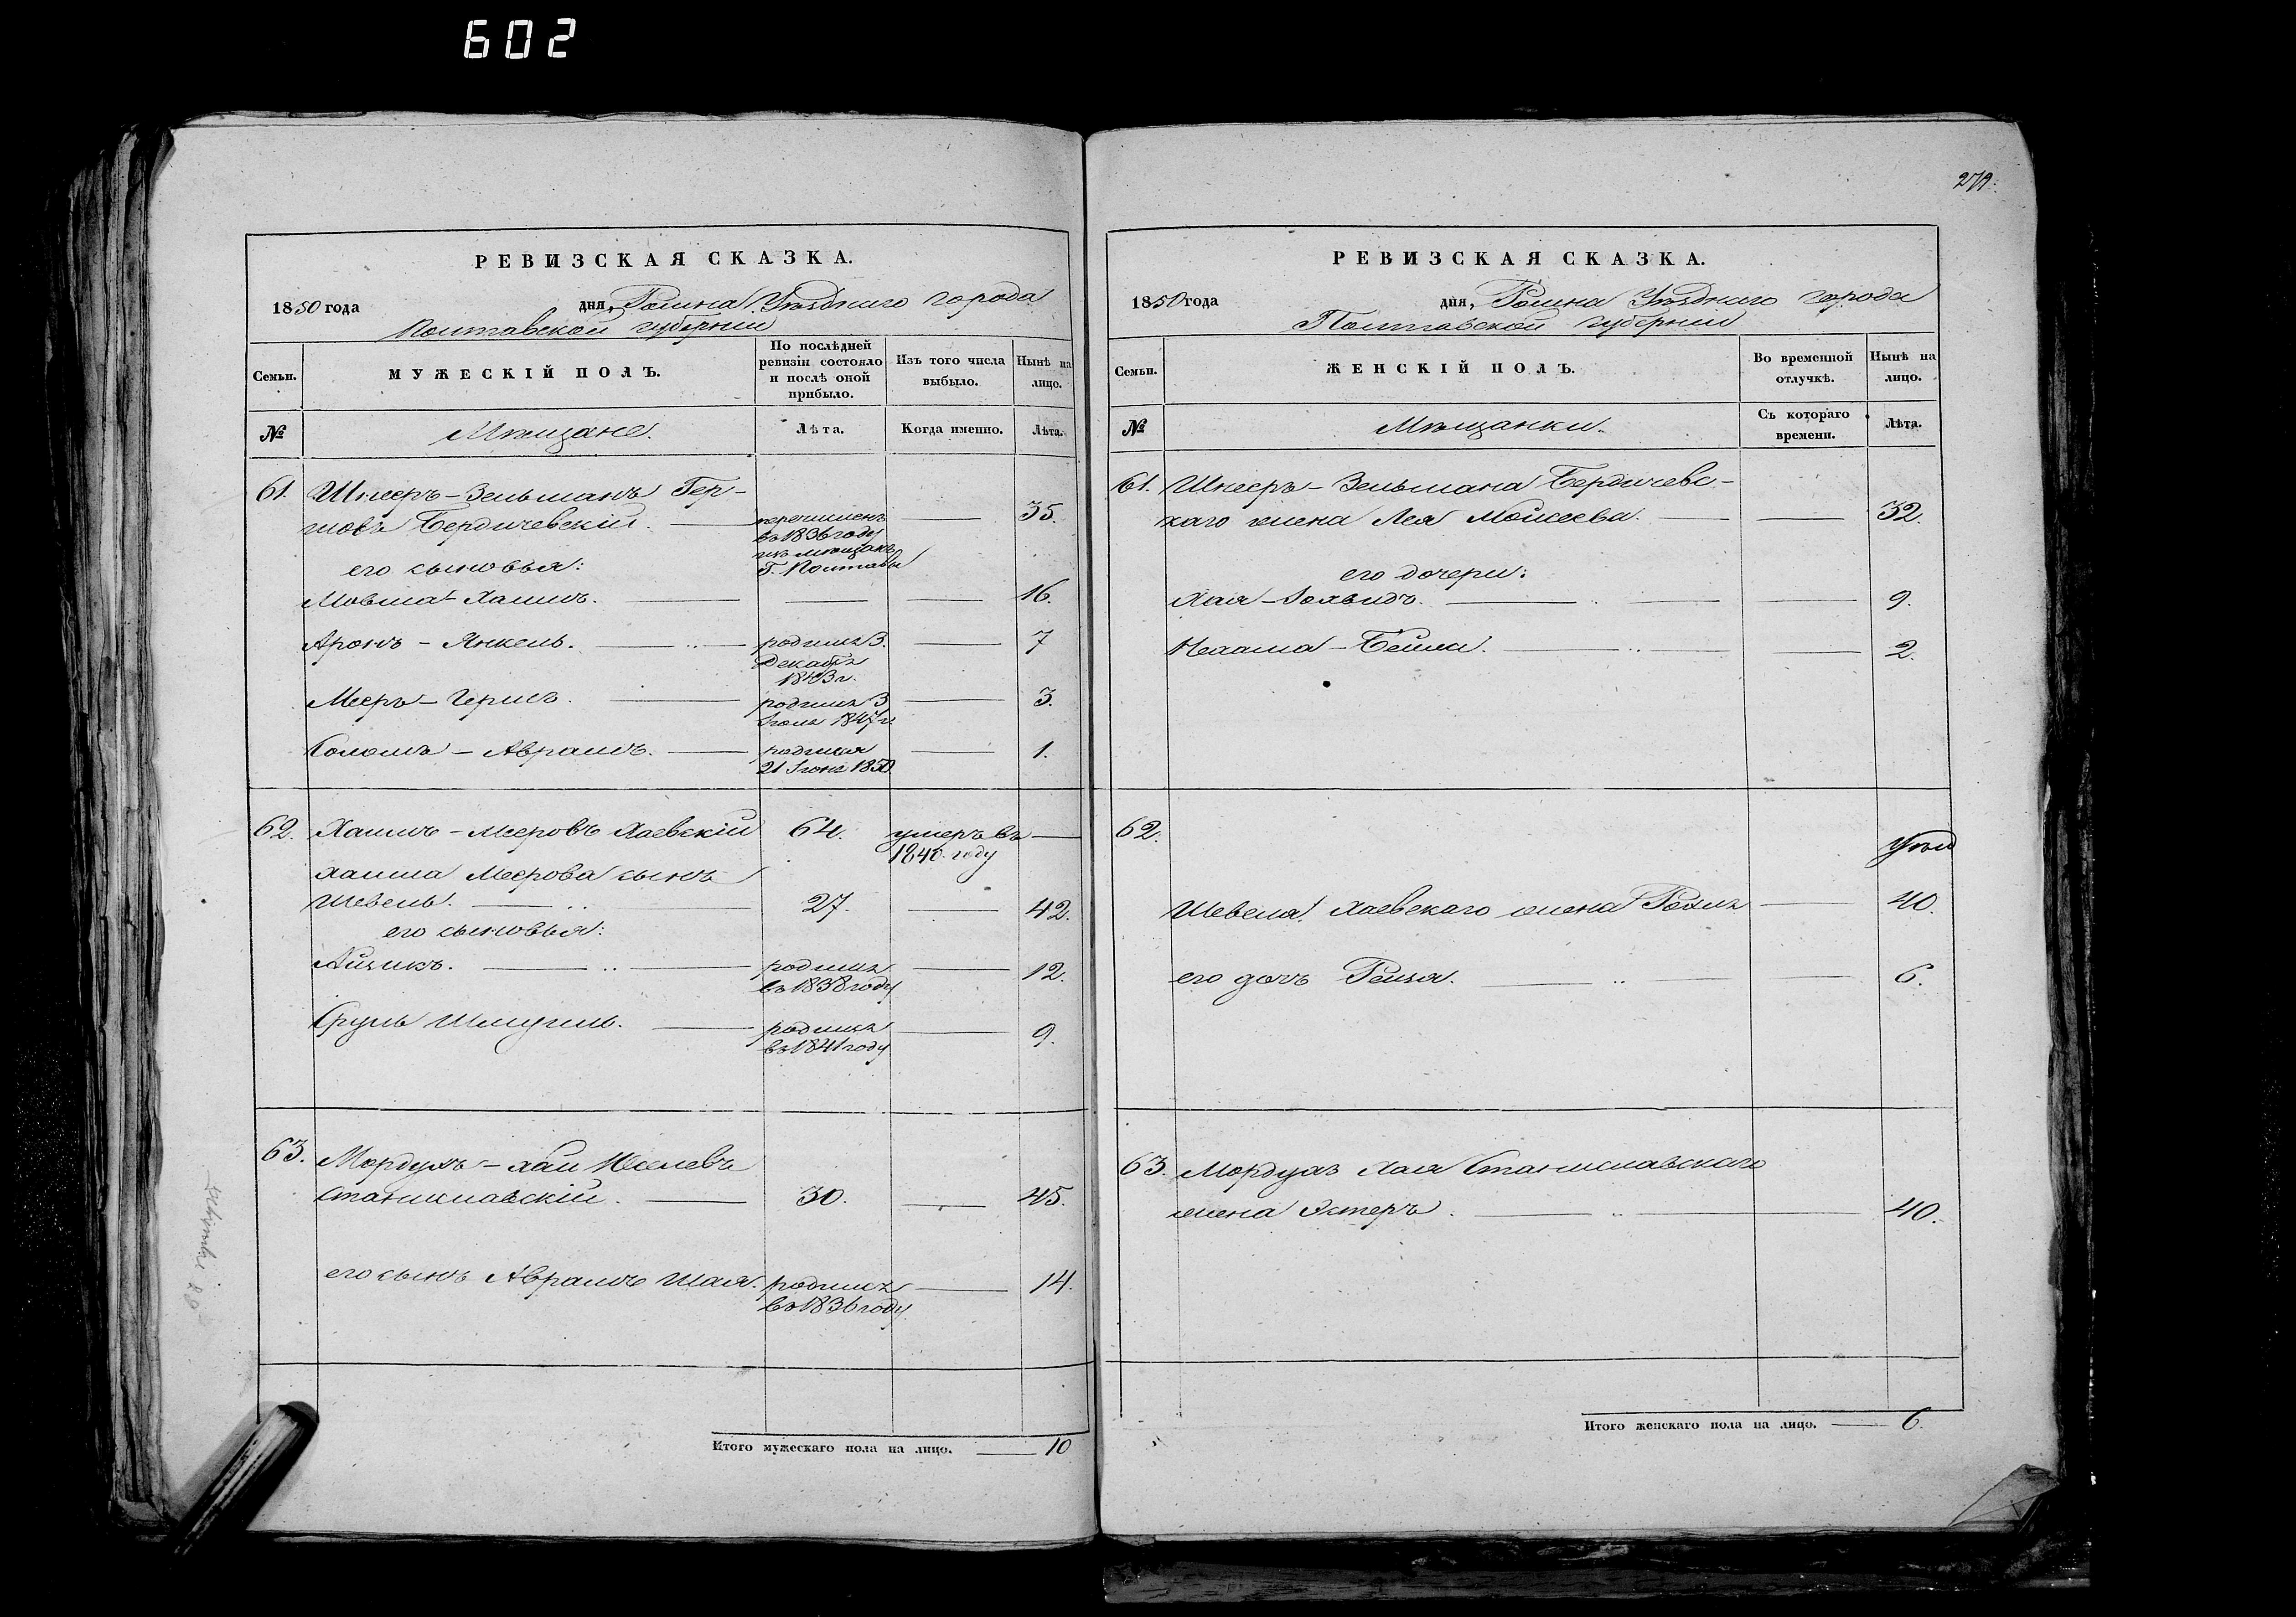 602
279.
РЕВИЗСКАЯ СКАЗКА.
1850 года дня, Ромна Уѣзднаго города
Полтавской губерніи
Семьи.
МУЖЕСКІЙ ПОЛЪ.
По послѣдней ревизіи состояло и послѣ оной прибыло.
Изъ того числа выбыло.
Нынѣ на лицо.
№
Мѣщане.
Лѣта.
Когда именно.
Лѣта.
61. Шнееръ-Зельманъ Гер-
шовъ Бердичевскій. перечисленъ 35.
въ 1836 году
изъ мѣщанъ
Г. Полтавы
его сыновья:
Мовша-Хаимъ. 16.
Аронъ-Янкель. родился 3. 7
Декабря
1843 г.
Мееръ-Гершъ. родился 3 3.
Іюля 1847 г.
Соломъ-Аврамъ. родился 1.
21 Іюня 1850
62. Хаимъ-Мееровъ Хаевскій 64. умеръ въ
1840. году
Хаима Меерова сынъ
Шевель. 27. 42.
его сыновья:
Айзикъ. родился 12.
въ 1838 году
Сруль Шмуиль. родился 9.
въ 1841 году
63. Мордухъ-Хаи Юселевъ
Станиславскій. 30. 45.
его сынъ Аврамъ Шая. родился 14.
въ 1836 году
Итого мужескаго пола на лицо. 10
РЕВИЗСКАЯ СКАЗКА.
1850 года дня, Ромна Уѣзднаго города
Полтавской губерніи
Семьи.
ЖЕНСКІЙ ПОЛЪ.
Во временной отлучкѣ.
Нынѣ на лицо.
№
Мѣщанки.
Съ котораго времени.
Лѣта.
61. Шнееръ-Зельмана Бердичевс-
каго жена Лея Мойсеева. 32.
его дочери:
Хая- 9.
Нехама-Бейла. 2.
62.
Шевеля Хаевскаго жена 40.
его дочь Рейзя. 6.
63. Мордуха Хая Станиславскаго
жена Эстеръ. 40.
Итого женскаго пола на лицо. 6.